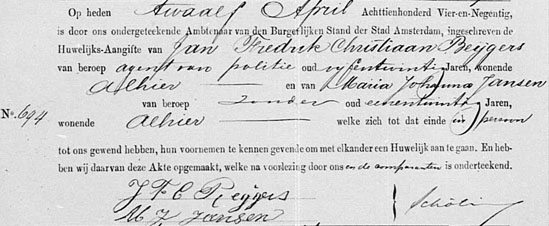 Op heden Twaalf April Achttienhonderd Vier-en-Negentig,
is door ons ondergeteekende Ambtenaar van den Burgerlijken Stand der Stad Amsterdam, ingeschreven de
Huwelijks-Aangifte van Jan Fredrik Christiaan Reijgers
van beroep agent van politie oud vyfentwintig Jaren, wonende
alhier en van Maria Johanna Jansen
van beroep zonder oud eenentwintig Jaren,
No. 694 wonende alhier welke zich tot dat einde in persoon
tot ons gewend hebben, hun voornemen te kennen gevende om met elkander een Huwelijk aan te gaan. En heb-
ben wij daarvan deze Akte opgemaakt, welke na voorlezing door ons en de comparanten is onderteekend.
J F C Reijgers
M J Jansen